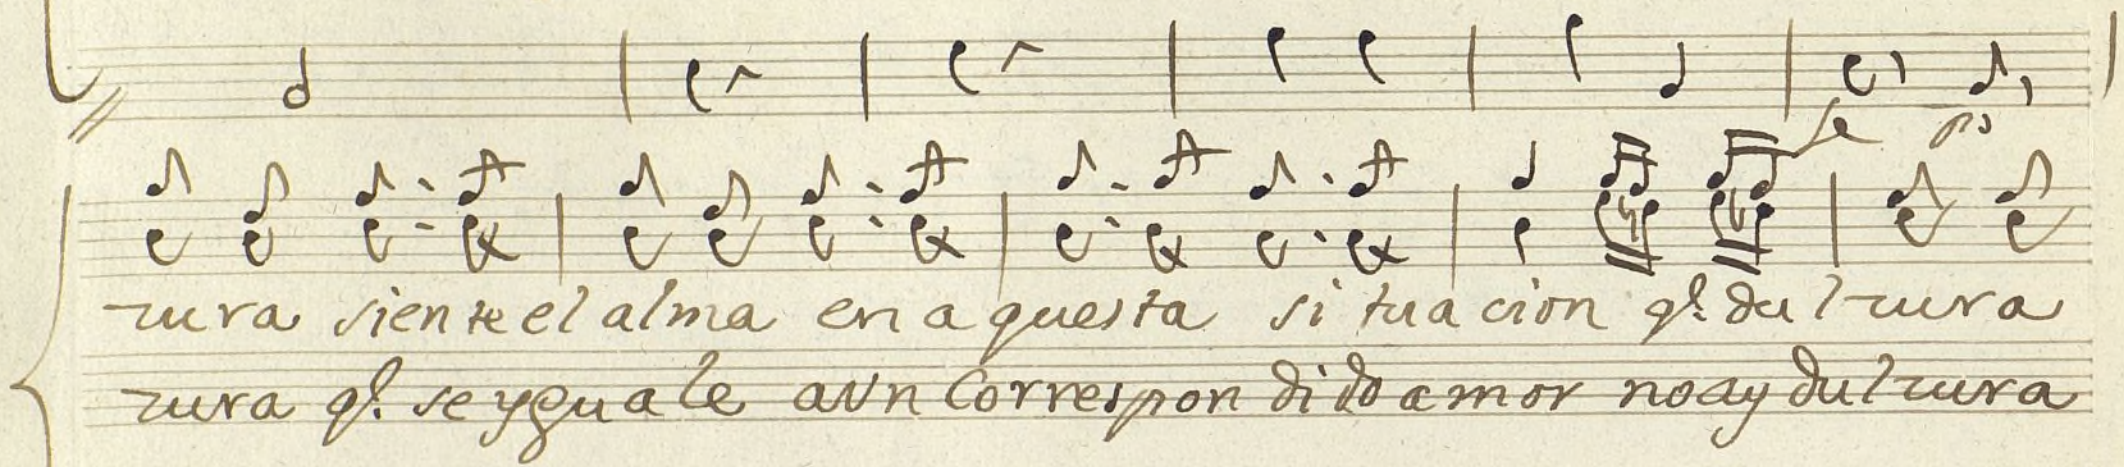 fe po
zura siente el alma en aquesta situacion qe. dulzura
zura qe. se yguale a un Correspondido amor no ay dulzura